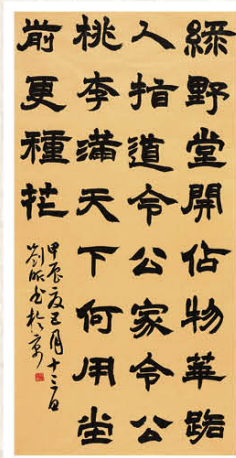 綠野堂開佔物華路
人指道令公家令公
桃李滿天下何用堂
前更種花
甲辰夏五月十三日
劉 书於京